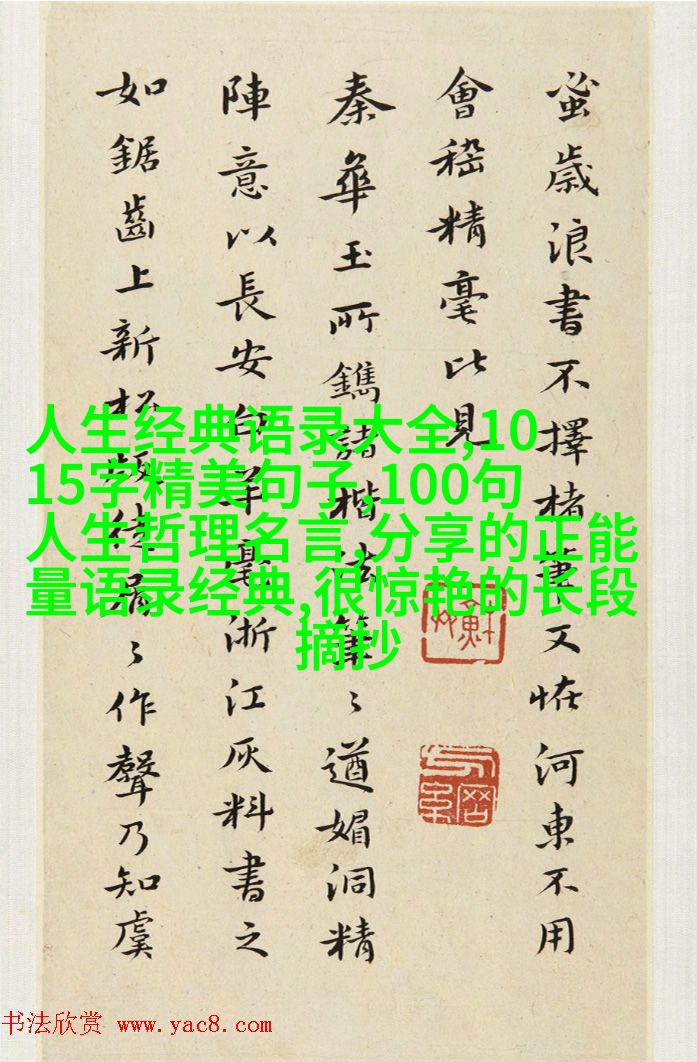 蚤歲浪書不擇楮筆又怪河東不用
會稽精毫比見
秦華玉所鐫諸楷法筆〻遒媚洞精
陣意以長安羊毫浙江灰料書之
如鋸齒上新〻作聲乃知虞
人生经典语录大全,10
15字精美句子,100句
人生哲理名言,分享的正能
量语录经典,很惊艳的长段
摘抄
书法欣赏 www.yac8.com